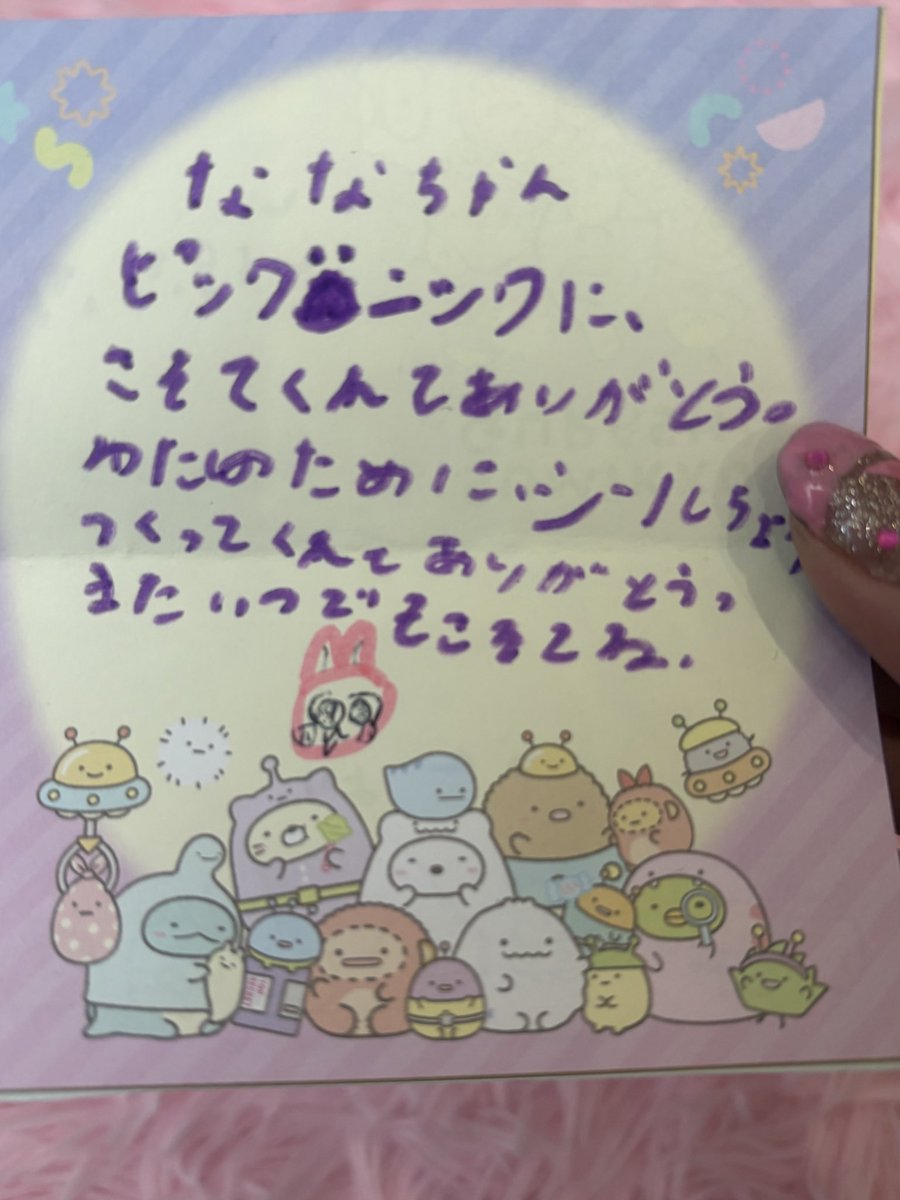 ななちゃん
ピックニックに、
こそてくれてありがどう。
ゆたしのために、シールちょ
つくってくれてありがどう、
またいつでもこそてね.